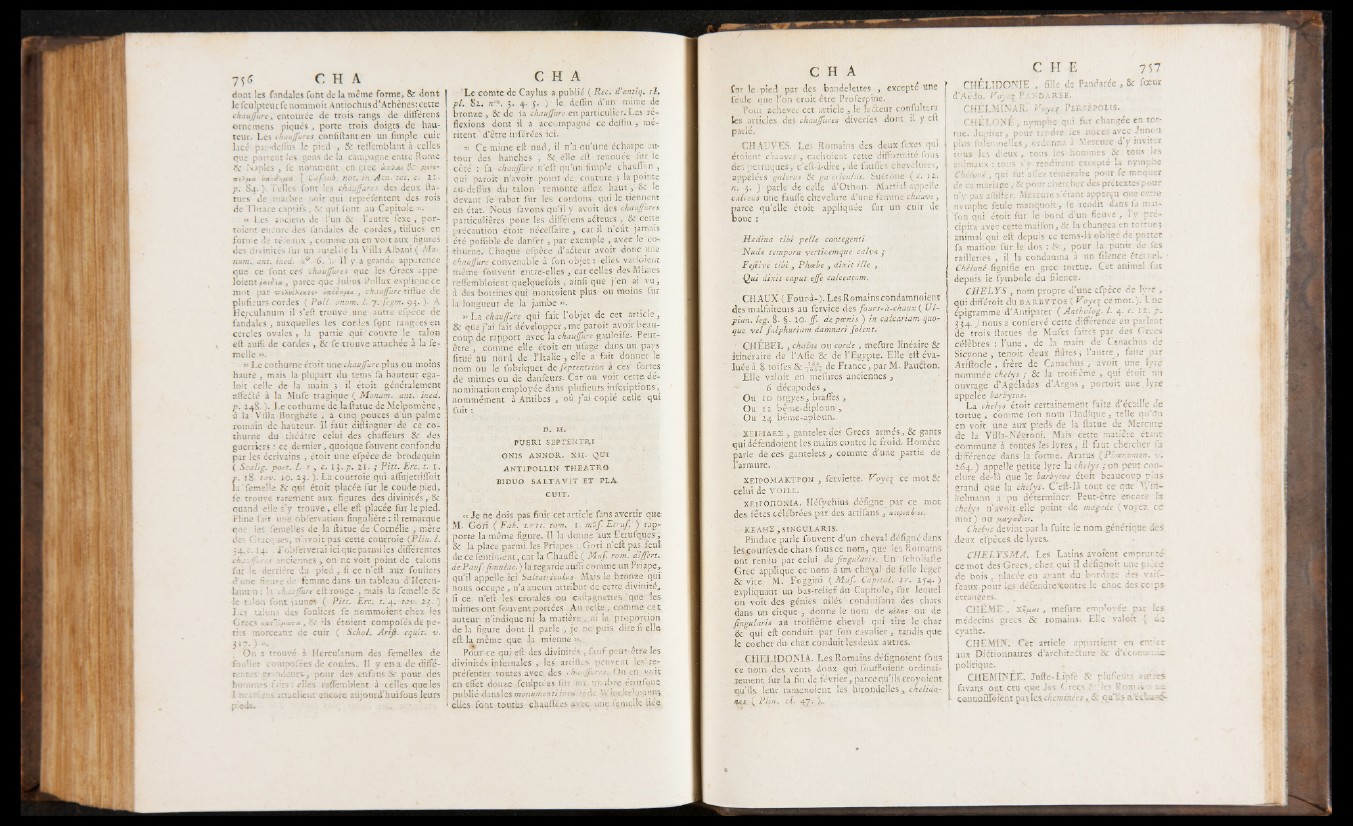 756 C H A
dont les sandales sont de la même forme, & dont
le sculpteur se nommoit Antiochus d'Athènes: cette
chaussure, entourée de trois rangs de différens
ornemens piqués, porte trois doigts de hau-
teur. Les chaussures consistant en un simple cuir
lacé par-dessus le pied, & ressemblant à celles
que portent les gens de la campagne entre Rome
& Naples, se nomment en grec
p. 84. ). Telles sont les chaussures des deux sta-
tues de marbre noir qui représentent des rois
de Thrace captifs, & qui sont au Capitole ».
« Les anciens de l'un & l'autre sexe, por-
toient encore des sandales de cordes, tissues en
forme de réseaux, comme on en voit aux figures
des divinités sur un autel de la Villa Albani ( Mo-
num. ant. ined. nº 6. ). Il y a grande apparence
que ce sont ces chaussures que les Grecs appe-
loient , parce que Julius Pollux explique ce
mot par , chaussure tissue de
plusieurs cordes ( Poll. onom. l. 7. segm. 93. ). A
Herculanum il s'est trouvé une autre espèce de
sandales, auxquelles les cordes sont rangées en
cercles ovales, la partie qui couvre le talon
est aussi de cordes, & se trouve attachée à la se-
melle ».
« Le cothurne étoit une chaussure plus ou moins
haute, mais la plupart du tems sa hauteur éga-
loit celle de la main; il étoit généralement
affecté à la Muse tragique ( Monum. ant. ined.
p. 248. ). Le cothurne de la statue de Melpomène,
à la Villa Borghèse, a cinq pouces d'un palme
romain de hauteur. Il faut distinguer de ce co-
thurne du théâtre celui des chasseurs & des
guerriers: ce dernier, quoique souvent confondu
par les écrivains, étoit une espèce de brodequin
( Scalig. poet. l. 1, c. 13. p. 21. ; Pitt. Erc. t. 1.
p. 18. tov. 10. 23. ). La courroie qui assujettissoit
la semelle & qui étoit placée sur le coude-pied,
se trouve rarement aux figures des divinités, &
quand elle s'y trouve, elle est placée sur le pied.
Pline fait une observation singulière: il remarque
que les semelles de la statue de Cornélie, mère
des Gracques, n'avoit pas cette courroie (Plin. l.
34. c. 14. J'observerai ici que parmi les différentes
chaussures anciennes, on ne voit point de talons
sur le derrière du pied, si ce n'est aux souliers
d'une figure de femme dans un tableau d'Hercu-
lanum: la chaussure est rouge, mais la semelle &
le talon sont jaunes ( Pitt. Erc. t. 4. tov. 23. )
Les talons des souliers se nommoient chez les
Grecs , & ils étoient composés de pe-
tits morceaux de cuir ( Schol. Arist. equit. v.
317. ) ».
On a trouvé à Herculanum des semelles de
soulier composées de cordes. Il y en a de diffé-
rentes grandeurs, pour des enfans & pour des
hommes faits: elles ressemblent à celles que les
attachent encore aujourd'hui sous leurs
pieds.
C H A
Le comte de Caylus a publié ( Rec. d'antiq. II,
pl. 82. nos. 3. 4. 5. ) le dessin d'un mime de
bronze, & de sa chaussure en particulier. Les ré-
flexions dont il a accompagné ce dessin, mé-
ritent d'être insérées ici.
« Ce mime est nud, il n'a qu'une écharpe au-
tour des hanches, & elle est renouée sur le
côté: sa chaussure n'est qu'un simple chausson,
qui paroît n'avoit point de couture; la pointe
au-dessus du talon remonte assez haut, & le
devant se rabat sur les cordons qui le tiennent
en état. Nous savons qu'il y avoit des chaussures
particulières pour les différens acteurs, & cette
précaution étoit nécessaire, car il n'eût jamais
été possible de danser, par exemple, avec le co-
thurne. Chaque espèce d'acteur avoit donc une
chaussure convenable à son objet: elles varioient
même souvent entre-elles, car celles des Mimes
ressembloient quelquefois, ainsi que j'en ai vu,
à des bottines qui montoient plus ou moins sur
la longueur de la jambe ».
» La chaussure qui fait l'objet de cet article,
& que j'ai fait développer, me paroît avoir beau-
coup de rapport avec la chaussure gauloise. Peut-
être, comme elle étoit en usage dans un pays
situé au nord de l'Italie, elle a fait donner le
nom ou le sobriquet de septentrion à ces sortes
de mimes ou de danseurs. Car on voit cette dé-
nomination employée dans plusieurs inscriptions,
nommément à Antibes, où j'ai copié celle qui
suit:
D. M.
PUERI SEPTENTRI
ONIS ANNOR. XII. QUI
ANTIPOLLIN THEATRO
BIDUO SALTAVIT ET PLA
CUIT.
« Je ne dois pas finir cet article sans avertir que
M. Gori ( Fab. XVII. tom. 1. mus. Etrus. ) rap-
porte la même figure. Il la donne aux Etrusques,
& la place parmi les Priapes: Gori n'est pas seul
de ce sentiment, car la Chausse ( Mus. rom. dissert.
de Pans. simulac. ) la regarde aussi comme un Priape,
qu'il appelle ici Saltatricula. Mais le bronze qui
nous occupe, n'a aucun attribut de cette divinité,
si ce n'est les crotales ou castagnettes que les
mimes ont souvent portées. Au reste, comme cet
auteur n'indique ni la matière, ni la proportion
de la figure dont il parle, je ne puis dire si elle
est la même que la mienne ».
Pour ce qui est des divinités, sauf peut-être les
divinités infernales, les artistes peuvent les re-
présenter toutes avec des chaussures. On en voit
en effet douze sculptées sur un marbre étrusque
publié dans les monumenti inediti de Winckelmann;
elles sont toutes chaussées avec une semelle liée
C H A
sur le pied par des bandelettes, excepté une
seule que l'on croit être Proserpine.
Pour achever cet article, le lecteur consultera
les articles des chaussures diverses dont il y est
parlé.
CHAUVES. Les Romains des deux sexes qui
étoient chauves, cachoient cette difformité sous
des perruques, c'est-à-dire, de fausses chevelures,
appelées galerus & galericulus. Suétone ( c. 12.
n. 3. ) parle de celle d'Othon. Martial appelle
calvus une fausse chevelure d'une femme chauve,
parce qu'elle étoit appliquée sur un cuir de
bouc:
Hædina tibi pelle contegenti
Nudæ tempora verticemque calvæ;
Festive tibi, Phœbe, dixit ille,
Qui dixit caput esse calceatum.
CHAUX ( Four-à-). Les Romains condamnoient
des malfaiteurs au service des fours-à-chaux ( Ul-
pian. leg. 8. §. 10. ff. de pœnis ) in calcariam quo-
que vel sulphuriam damnari solent.
CHÉBEL, chebu ou corde, mesure linéaire &
itinéraire de l'Asie & de l'Egypte. Elle est éva-
luée à 8 toises & de France, par M. Paucton.
Elle valoit en mesures anciennes,
6 décapodes,
Ou 10 orgyes, brasses,
Ou 12 bême-diploun,
Ou 24 bême-aploun.
ΧΕΙΡΙΔΕΣ, gantelet des Grecs armés, & gants
qui défendoient les mains contre le froid. Homère
parle de ces gantelets, comme d'une partie de
l'armure.
ΧΕΙΡΟΜΑΚΤΡΟΝ, serviette. Voyez ce mot &
celui de VOILE.
ΧΕΙΡΟΠΟΝΙΑ. Hésychius désigne par ce mot
des fêtes célébrées par des artisans,
ΚΕΛΗΣ, SINGULARIS.
Pindare parle souvent d'un cheval désigné dans
les courses de chars sous ce nom, que les Romains
ont rendu par celui de singularis. Un scholiaste
Grec applique ce nom à un cheval de selle léger
& vîte. M. Foggini ( Mus. Capitol. IV. 254. )
expliquant un bas-relief du Capitole, sur lequel
on voit des génies ailés conduisant des chars
dans un cirque, donne le nom de κέλης ou de
singularis au troisième cheval qui tire le char
& qui est conduit par son cavalier, tandis que
le cocher du char conduit les deux autres.
CHELIDONIA. Les Romains désignoient sous
ce nom des vents doux qui souffloient ordinai-
rement sur la fin de février, parce qu'ils croyoient
qu'ils leur ramenoient les hirondelles, chelido-
nes ( Plin. II. 47. ).
C H E 757
CHÉLIDONIE, fille de Pandarée, & sœur
d'Aëdo. Voyez PANDARÉE.
CHELMINAR. Voyez PERSÉPOLIS.
CHÉLONÉ, nymphe qui fut changée en tor-
tue. Jupiter, pour rendre les nôces avec Junon
plus solennelles, ordonna à Mercure d'y inviter
tous les dieux, tous les hommes & tous les
animaux: tous s'y rendirent excepté la nymphe
Chéloné, qui fut assez téméraire pour se moquer
de ce mariage, & pour chercher des prétextes pour
n'y pas assister. Mercure s'étant apperçu que cette
nymphe seule manquoit, se rendit dans sa mai-
son qui étoit sur le bord d'un fleuve, l'y pré-
cipita avec cette maison, & la changea en tortue;
animal qui est depuis ce tems-là obligé de porter
sa maison sur le dos: & , pour la punir de ses
railleries, il la condamna à un silence éternel.
Chéloné signifie en grec tortue. Cet animal fut
depuis le symbole du silence.
CHELYS, nom propre d'une espèce de lyre,
qui différoit du BARBYTOS ( Voyez ce mot. ). Une
épigramme d'Antipater ( Antholog. l. 4. c. 12. p.
334. ) nous a conservé cette différence en parlant
de trois statues de Muses faites par des Grecs
célèbres: l'une, de la main de Canachus de
Sicyone, tenoit deux flûtes; l'autre, faite par
Aristocle, frère de Canachus, avoit une lyre
nommée chelys; & la troisième, qui étoit un
ouvrage d'Agéladas d'Argos, portoit une lyre
appelée barbytos.
La chelys étoit certainement faite d'écaille de
tortue, comme son nom l'indique, telle qu'on
en voit une aux pieds de la statue de Mercure
de la Villa-Négroni. Mais cette matière étant
commune à toutes les lyres, il faut chercher sa
différence dans la forme. Aratus ( Phænomen. v.
264. ) appelle petite lyre la chelys; on peut con-
clure de-là que le barbytos étoit beaucoup plus
grand que la chelys. C'est-là tout ce que Win-
kelmann a pu déterminer. Peut-être encore la
chelys n'avoit-elle point de magade ( voyez ce
mot ) ou
Chelys devint par la suite le nom générique des
deux espèces de lyres.
CHELYSMA. Les Latins avoient emprunté
ce mot des Grecs, chez qui il désignoit une pièce
de bois, placée en avant du bordage des vais-
seaux pour les défendre contre le choc des corps
étrangers.
CHÈME, , mesure employée par les
médecins grecs & romains. Elle valoit de
cyathe.
CHEMIN. Cet article appartient en entier
aux Dictionnaires d'architecture & d'économie
politique.
CHEMINÉE. Juste-Lipse & plusieurs autres
savans ont cru que les Grecs & les Romains ne
connoissoient pas les cheminées, & qu'ils